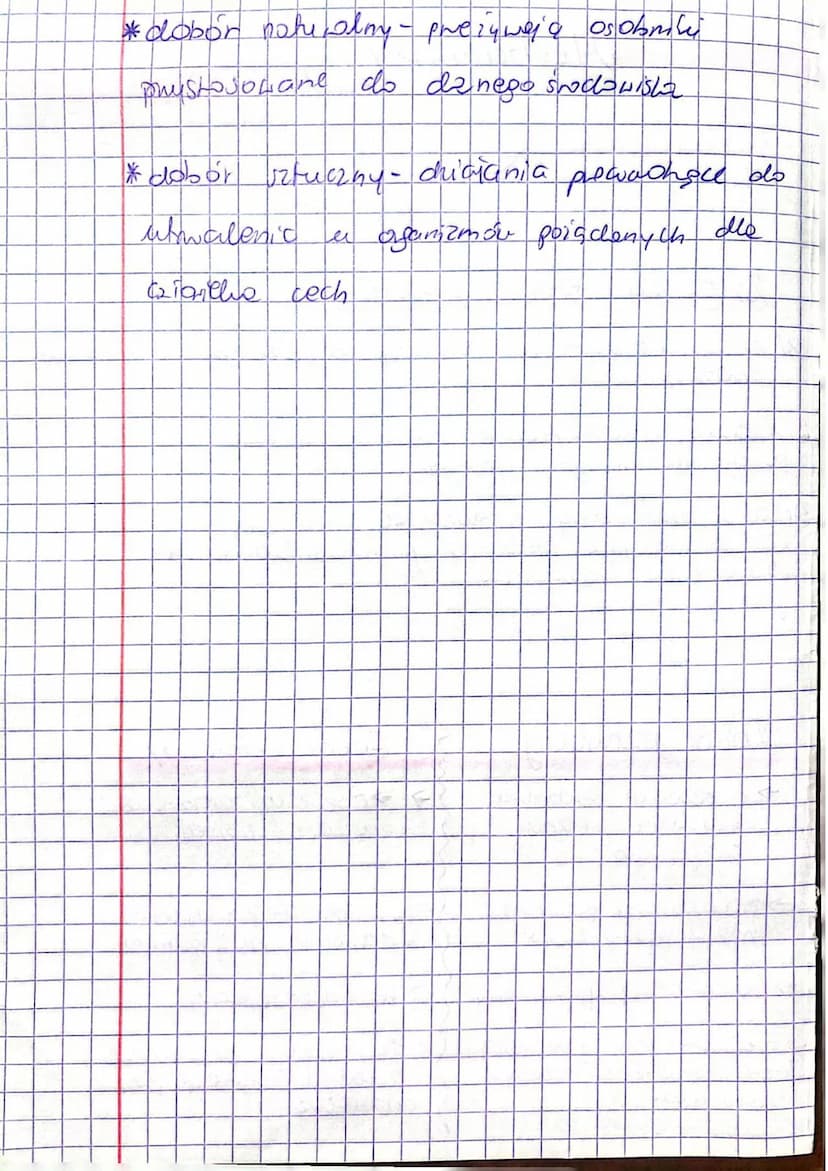 * dobór naturalny - przeżywają osobniki
przystosowane do danego środowiska
* dobór sztuczny - działania prowadzące do
utrwalenia u organizmów pożądanych dla
człowieka cech